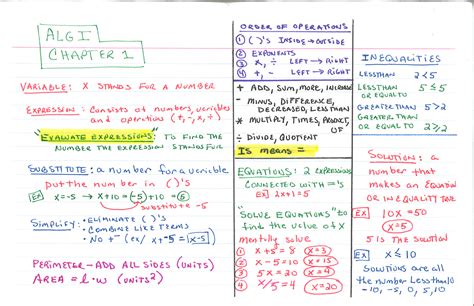 ALG I
CHAPTER 1
VARIABLE: X STANDS FOR A NUMBER
EXPRESSION: Consists of numbers, variables
and operations (+, -, x, ÷)
"EVALUATE EXPRESSIONS": TO FIND THE
NUMBER THE EXPRESSION STANDS FOR
SUBSTITUTE: a number for a variable
put the number in ( )'s
EX x=-5 → x+10 = (-5)+10 = 5
substitute -5
SIMPLIFY: • ELIMINATE ( )'S
• COMBINE LIKE TERMS
• NO +- (ex/ x+-5 = x-5)
PERIMETER - ADD ALL SIDES (UNITS)
AREA = l·w (UNITS²)
ORDER OF OPERATIONS
1 ( )'S INSIDE → OUTSIDE
2 EXPONENTS
3 x, ÷ LEFT → RIGHT
4 +, - LEFT → RIGHT
+ ADD, SUM, MORE, INCREASE
- MINUS, DIFFERENCE,
DECREASED, LESS THAN
* MULTIPLY, TIMES, PRODUCT,
OF
÷ DIVIDE, QUOTIENT
IS MEANS =
EQUATIONS: 2 EXPRESSIONS
CONNECTED WITH ='S
EX: 2x+1=5
"SOLVE EQUATIONS" to
find the value of x
mentally solve
1 x+5=8 x=3
2 x-5=10 x=15
3 5x=20 x=4
4 x=20
INEQUALITIES
LESS THAN 2<5
LESS THAN
OR EQUAL TO 2≤5
GREATER THAN 5>2
GREATER THAN
OR EQUAL TO 2≥2
SOLUTION: a
number that
makes an EQUATION
OR INEQUALITY TRUE
EX 10x=50
x=5
5 IS THE SOLUTION
EX x≤10
SOLUTIONS are all
the numbers less than 10
-10, -5, 0, 5, 10